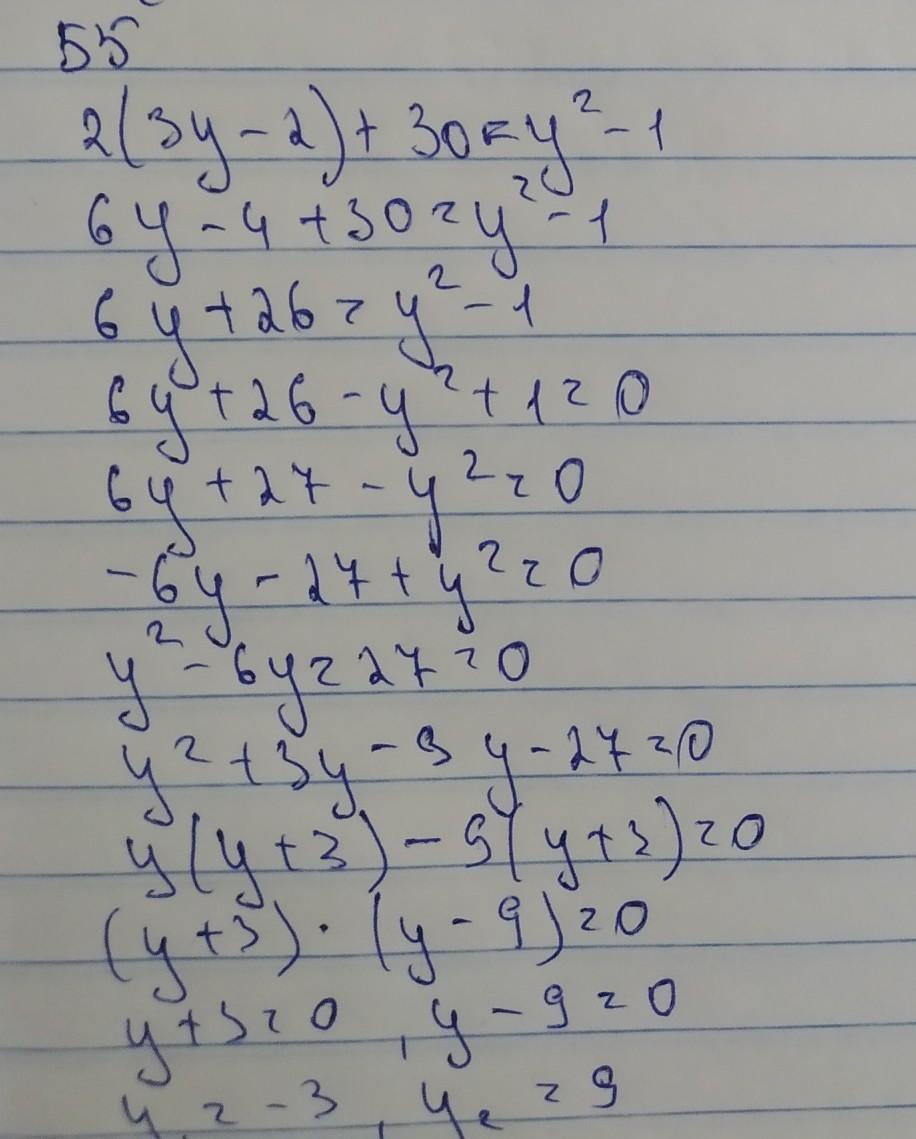 55
2(3y-2)+30=y²-1
6y-4+30=y²-1
6y+26=y²-1
6y+26-y²+1=0
6y+27-y²=0
-6y-27+y²=0
y²-6y=27=0
y²+3y-9y-27=0
y(y+3)-9(y+3)=0
(y+3)·(y-9)=0
y+3=0, y-9=0
y₁=-3, y₂=9